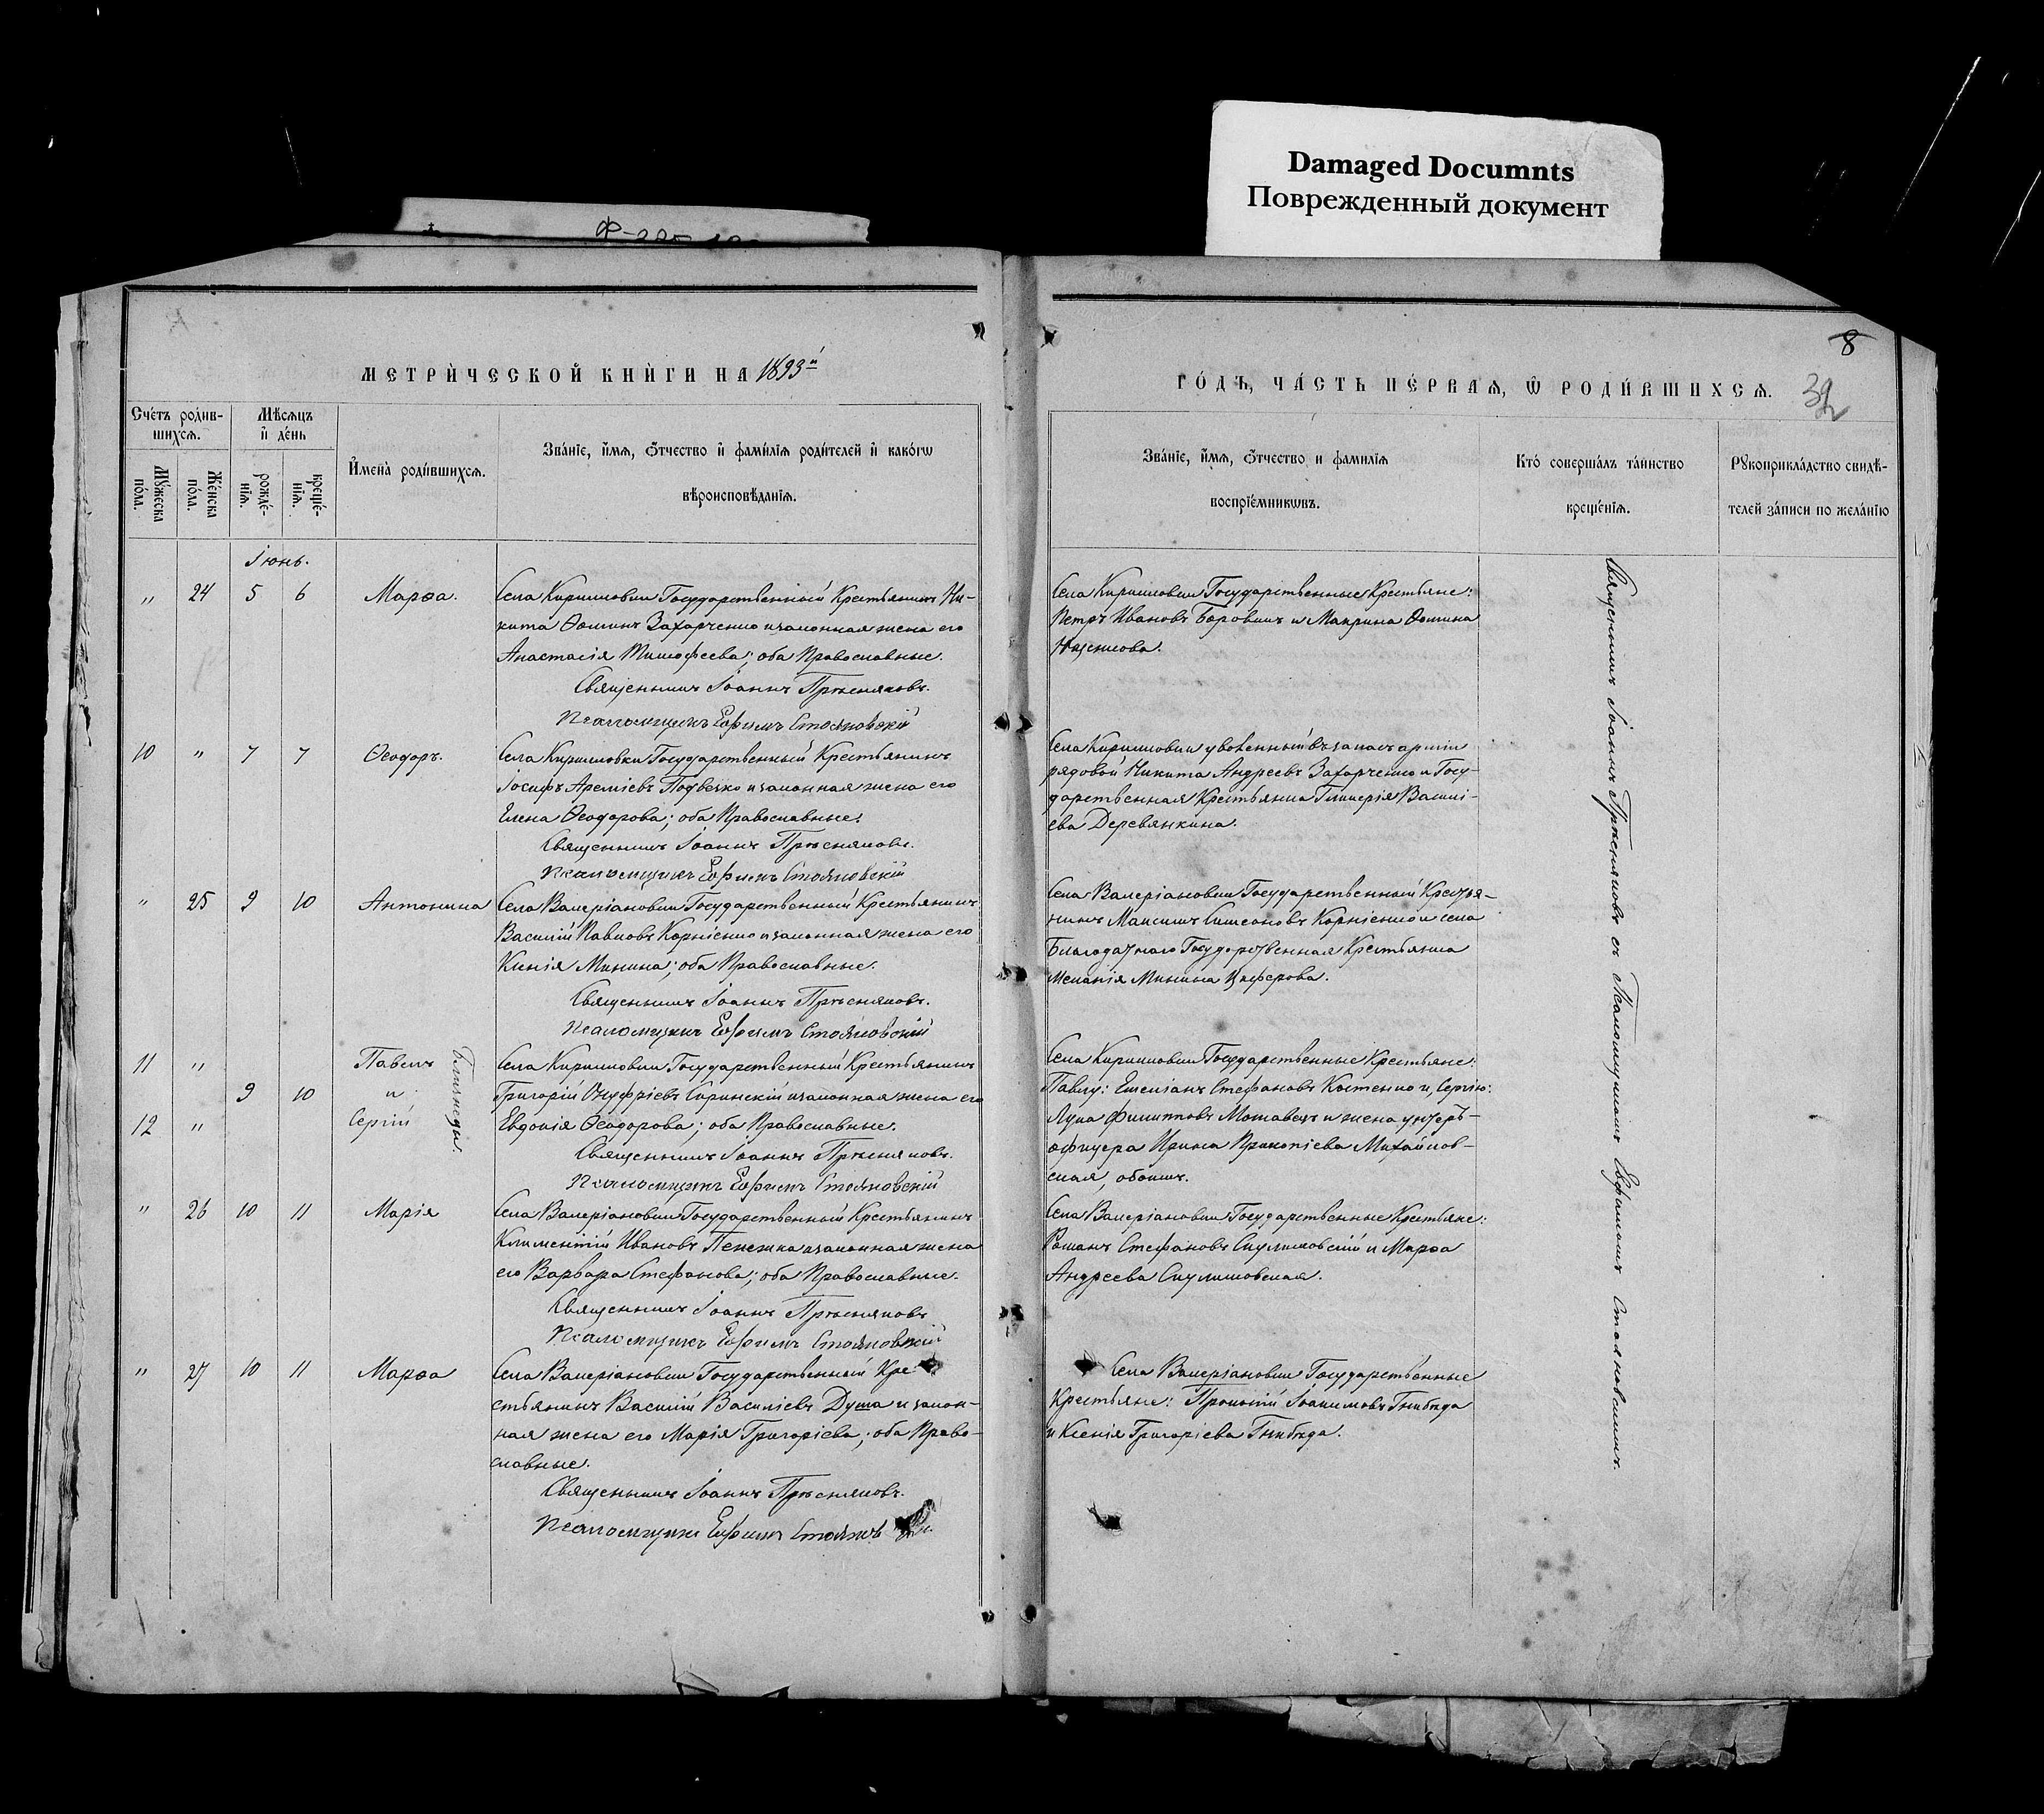 Damaged Documnts
Поврежденный документ
8
МЕТРИ́ЧЕСКОЙ КНИ́ГИ НА 1893й
ГО́ДЪ, ЧА́СТЬ ПЕ́РВАѦ, Ѡ҆ РОДИ́ВШИХСѦ.
Сче́тъ роди́в-
шихсѧ.
Мѣ́сѧцъ
и҆ де́нь
Мꙋ́жеска
по́ла.
Же́нска
по́ла.
рожде́-
нїѧ.
креще́-
нїѧ.
И҆мена̀ роди́вшихсѧ.
Зва́нїе, и҆́мѧ, ѻ҆́тчество и҆ фами́лїѧ роди́телей и҆ како́гѡ
вѣроисповѣ́данїѧ.
Зва́нїе, и҆́мѧ, ѻ҆́тчество и фами́лїѧ
воспрїе́мникѡвъ.
Кто́ соверша́лъ та́инство
креще́нїѧ.
Рꙋкоприкла́дство свидѣ́-
телей за́писи по жела́нїю
Іюнь.
" 24 5 6 Марѳа.
Села Кирилловки Государственный Крестьянинъ Ни-
кита Ѳоминъ Захарченко и законная жена его
Анастасія Тимофеева; оба Православные.
Священникъ Іоаннъ Прѣсняковъ.
Псаломщикъ Ефимъ Стояновскій
Села Кирилловки Государственные Крестьяне:
Петръ Ивановъ Боровикъ и Маврина Ѳомина
10 " 7 7 Ѳеодоръ.
Села Кирилловки Государственный Крестьянинъ
Іосифъ Аремѣевъ Подвезко и законная жена его
Елена Ѳеодорова; оба Православные.
Священникъ Іоаннъ Прѣсняковъ.
Псаломщикъ Ефимъ Стояновскій
Села Кирилловки уволенный въ запасъ арміи
рядовой Никита Андреевъ Захарченко и Госу-
дарственная Крестьянка Гликерія Василі-
ева Деревянкина.
" 25 9 10 Антонина
Села Валеріановки Государственный Крестьянинъ
Василій Павловъ Корніенко и законная жена его
Ксенія Минина; оба Православные.
Священникъ Іоаннъ Прѣсняковъ.
Псаломщикъ Ефимъ Стояновскій
Села Валеріановки Государственный Крестья-
нинъ Максимъ Симеоновъ Корніенко и села
Благодатнаго Государственная Крестьянка
Меланія Минина Циферова.
11 " Павелъ
9 10 и
12 " Сергій
Близнецы.
Села Кирилловки Государственный Крестьянинъ
Григорій Онуфріевъ Скринскій и законная жена его
Евдокія Ѳеодорова; оба Православные.
Священникъ Іоаннъ Прѣсняковъ.
Псаломщикъ Ефимъ Стояновскій
Села Кирилловки Государственные Крестьяне:
Павлу: Емеліанъ Стефановъ Костенко и, Сергію:
Лука Филипповъ Мотавецъ и жена унтеръ-
офицера Ирина Прокопіева Михайлов-
ская, обоимъ.
" 26 10 11 Марія
Села Валеріановки Государственный Крестьянинъ
Климентій Ивановъ Пенежка и законная жена
его Варвара Стефанова; оба Православные.
Священникъ Іоаннъ Прѣсняковъ
Псаломщикъ Ефимъ Стояновскій
Села Валеріановки Государственные Крестьяне:
Романъ Стефановъ Скулимовскій и Марѳа
Андреева Скулимовская.
" 27 10 11 Марѳа
Села Валеріановки Государственный Кре-
стьянинъ Василій Василіевъ Душа и закон-
ная жена его Марія Григоріева; оба Право-
славные.
Священникъ Іоаннъ Прѣсняковъ.
Псаломщикъ Ефимъ
Села Валеріановки Государственные
Крестьяне: Прокопій Іоакимовъ
и Ксенія Григоріева
Священникъ Іоаннъ Прѣсняковъ съ Псаломщикомъ Ефимомъ Стояновскимъ.